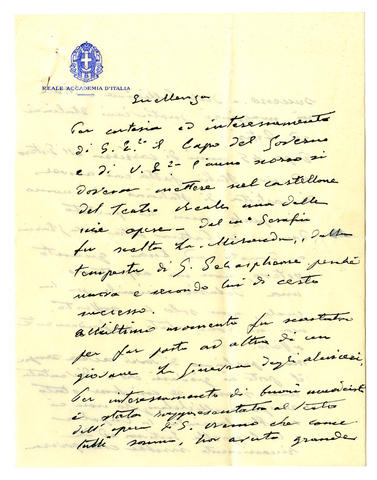 REALE ACCADEMIA D'ITALIA
Eccellenza
Per cortesia ed interessamento
di S. E. il Capo del Governo
e di V. E. l'anno scorso si
doveva mettere nel cartellone
del Teatro Reale una delle
mie opere - dal m° Serafin
fu scelta La Miranda, dalla
tempesta di G. Schaspheare, perché
nuova e secondo lui di certo
successo.
All'ultimo momento fu scartata
per far posto ad altra di un
giovane La Ginevra degli Almieri,
Per interessamento di buoni musicisti
è stata rappresentata al Teatro
dell'opera di S. Remo che come
tutti sanno, ha avuto grande